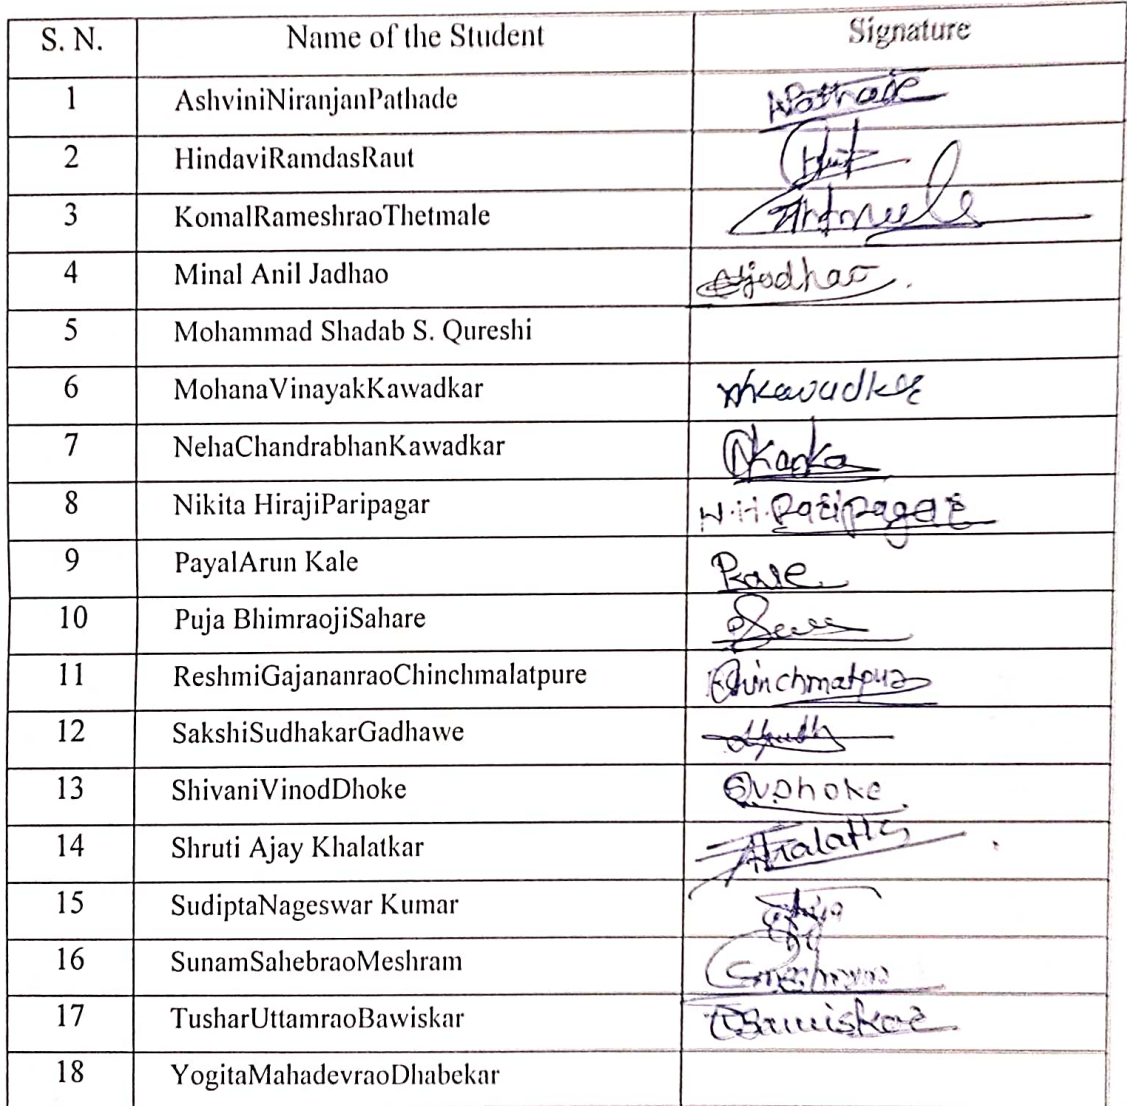 S. N. Name of the Student Signature
1 AshviniNiranjanPathade
2 HindaviRamdasRaut
3 KomalRameshraoThetmale
4 Minal Anil Jadhao
5 Mohammad Shadab S. Qureshi
6 MohanaVinayakKawadkar
7 NehaChandrabhanKawadkar
8 Nikita HirajiParipagar N.H.Paripagar
9 PayalArun Kale
10 Puja BhimraojiSahare
11 ReshmiGajananraoChinchmalatpure
12 SakshiSudhakarGadhawe
13 ShivaniVinodDhoke
14 Shruti Ajay Khalatkar
15 SudiptaNageswar Kumar
16 SunamSahebraoMeshram
17 TusharUttamraoBawiskar
18 YogitaMahadevraoDhabekar